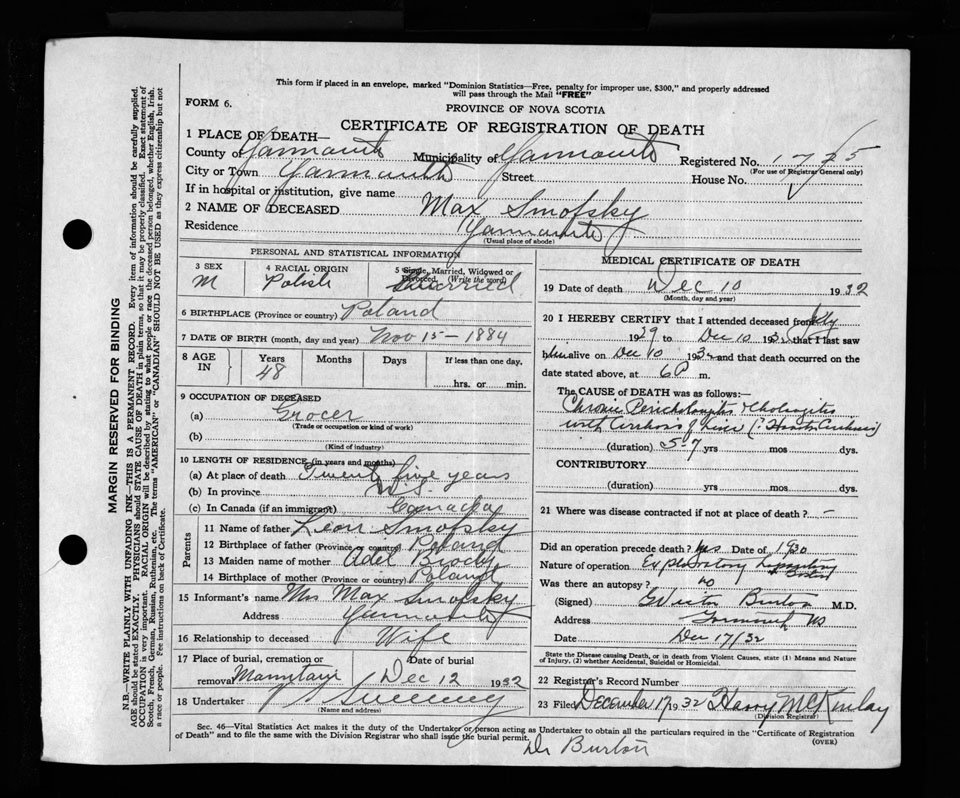 This form if placed in an envelope, marked "Dominion Statistics—Free, penalty for improper use, $300," and properly addressed
will pass through the Mail "FREE"
FORM 6.
PROVINCE OF NOVA SCOTIA
CERTIFICATE OF REGISTRATION OF DEATH
1 PLACE OF DEATH—
County of Yarmouth Municipality of Yarmouth Registered No.
(For use of Registrar General only)
City or Town Yarmouth Street House No.
If in hospital or institution, give name
2 NAME OF DECEASED Max Smofsky
Residence Yarmouth
(Usual place of abode)
PERSONAL AND STATISTICAL INFORMATION
3 SEX 4 RACIAL ORIGIN 5 Single, Married, Widowed or
Divorced. (Write the word)
M Polish Married
6 BIRTHPLACE (Province or country) Poland
7 DATE OF BIRTH (month, day and year) Nov 15 — 1884
8 AGE IN Years Months Days If less than one day,
48 hrs. or min.
9 OCCUPATION OF DECEASED
(a) Grocer
(Trade or occupation or kind of work)
(b)
(Kind of industry)
10 LENGTH OF RESIDENCE (in years and months)
(a) At place of death Twenty five years
(b) In province N.S.
(c) In Canada (if an immigrant) Canada
Parents
11 Name of father Leon Smofsky
12 Birthplace of father (Province or country) Poland
13 Maiden name of mother Adel
14 Birthplace of mother (Province or country) Poland
15 Informant's name Mrs Max Smofsky
Address Yarmouth
16 Relationship to deceased Wife
17 Place of burial, cremation or removal Date of burial
Dec 12 1932
18 Undertaker Sweeney
(Name and address)
MEDICAL CERTIFICATE OF DEATH
19 Date of death Dec 10 1932
(Month, day and year)
20 I HEREBY CERTIFY that I attended deceased from July
19 to Dec 10 1932 that I last saw
him alive on Dec 10 1932 and that death occurred on
date stated above, at 6 P m.
The CAUSE OF DEATH was as follows:—
Chronic & Cholangitis
with Cirrhosis of Liver
(duration) 5-7 yrs mos dys.
CONTRIBUTORY
(duration) yrs mos dys.
21 Where was disease contracted if not at place of death? —
Did an operation precede death? Yes Date of 1930
Nature of operation Exploratory Laparotomy
Was there an autopsy? no
(Signed) Burton M.D.
Address NS
Date Dec 17/32
State the Disease causing Death, or in death from Violent Causes, state (1) Means and Nature
of Injury, (2) whether Accidental, Suicidal or Homicidal.
22 Registrar's Record Number
23 Filed December 17 1932 Harry McKinlay
(Division Registrar)
Sec. 46—Vital Statistics Act makes it the duty of the Undertaker or person acting as Undertaker to obtain all the particulars required in the "Certificate of Registration
of Death" and to file the same with the Division Registrar who shall issue the burial permit.
(OVER)
Dr Burton
MARGIN RESERVED FOR BINDING
N.B.—WRITE PLAINLY WITH UNFADING INK—THIS IS A PERMANENT RECORD. Every item of information should be carefully supplied.
AGE should be stated EXACTLY. PHYSICIANS should STATE CAUSE OF DEATH in plain terms, so that it may be properly classified. Exact statement of
OCCUPATION is very important. RACIAL ORIGIN will be described by stating to what people or race the deceased person belonged, whether English, Irish,
Scotch, French, German, Russian, Ruthenian, etc. The terms "AMERICAN" or "CANADIAN" SHOULD NOT BE USED as they express citizenship but not
a race or people. Fee instructions on back of Certificate.